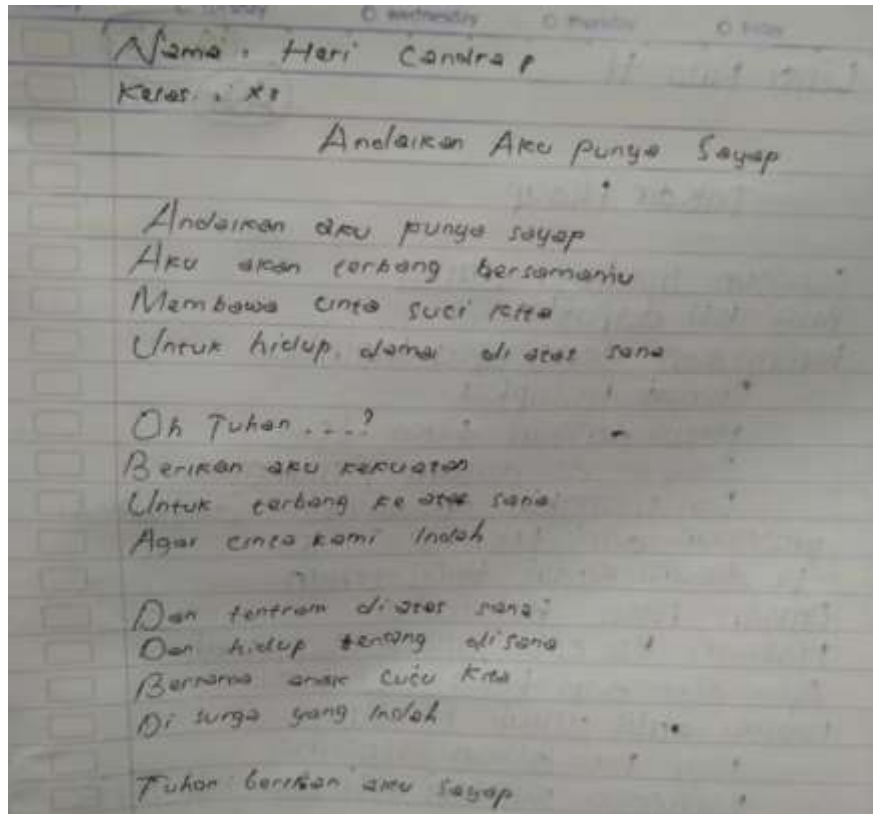 Wednesday
Nama : Hari Candra P
Kelas :
Andaikan Aku punya Sayap
Andaikan aku punya sayap
Aku akan terbang bersamamu
Membawa cinta suci kita
Untuk hidup, damai di atas sana
Oh Tuhan ...?
Berikan aku kekuatan
Untuk terbang ke atas sana
Agar cinta kami Indah
Dan tentram di atas sana
Dan hidup tenang disana
Bersama anak cucu kita
Di surga yang Indah
Tuhan berikan aku sayap